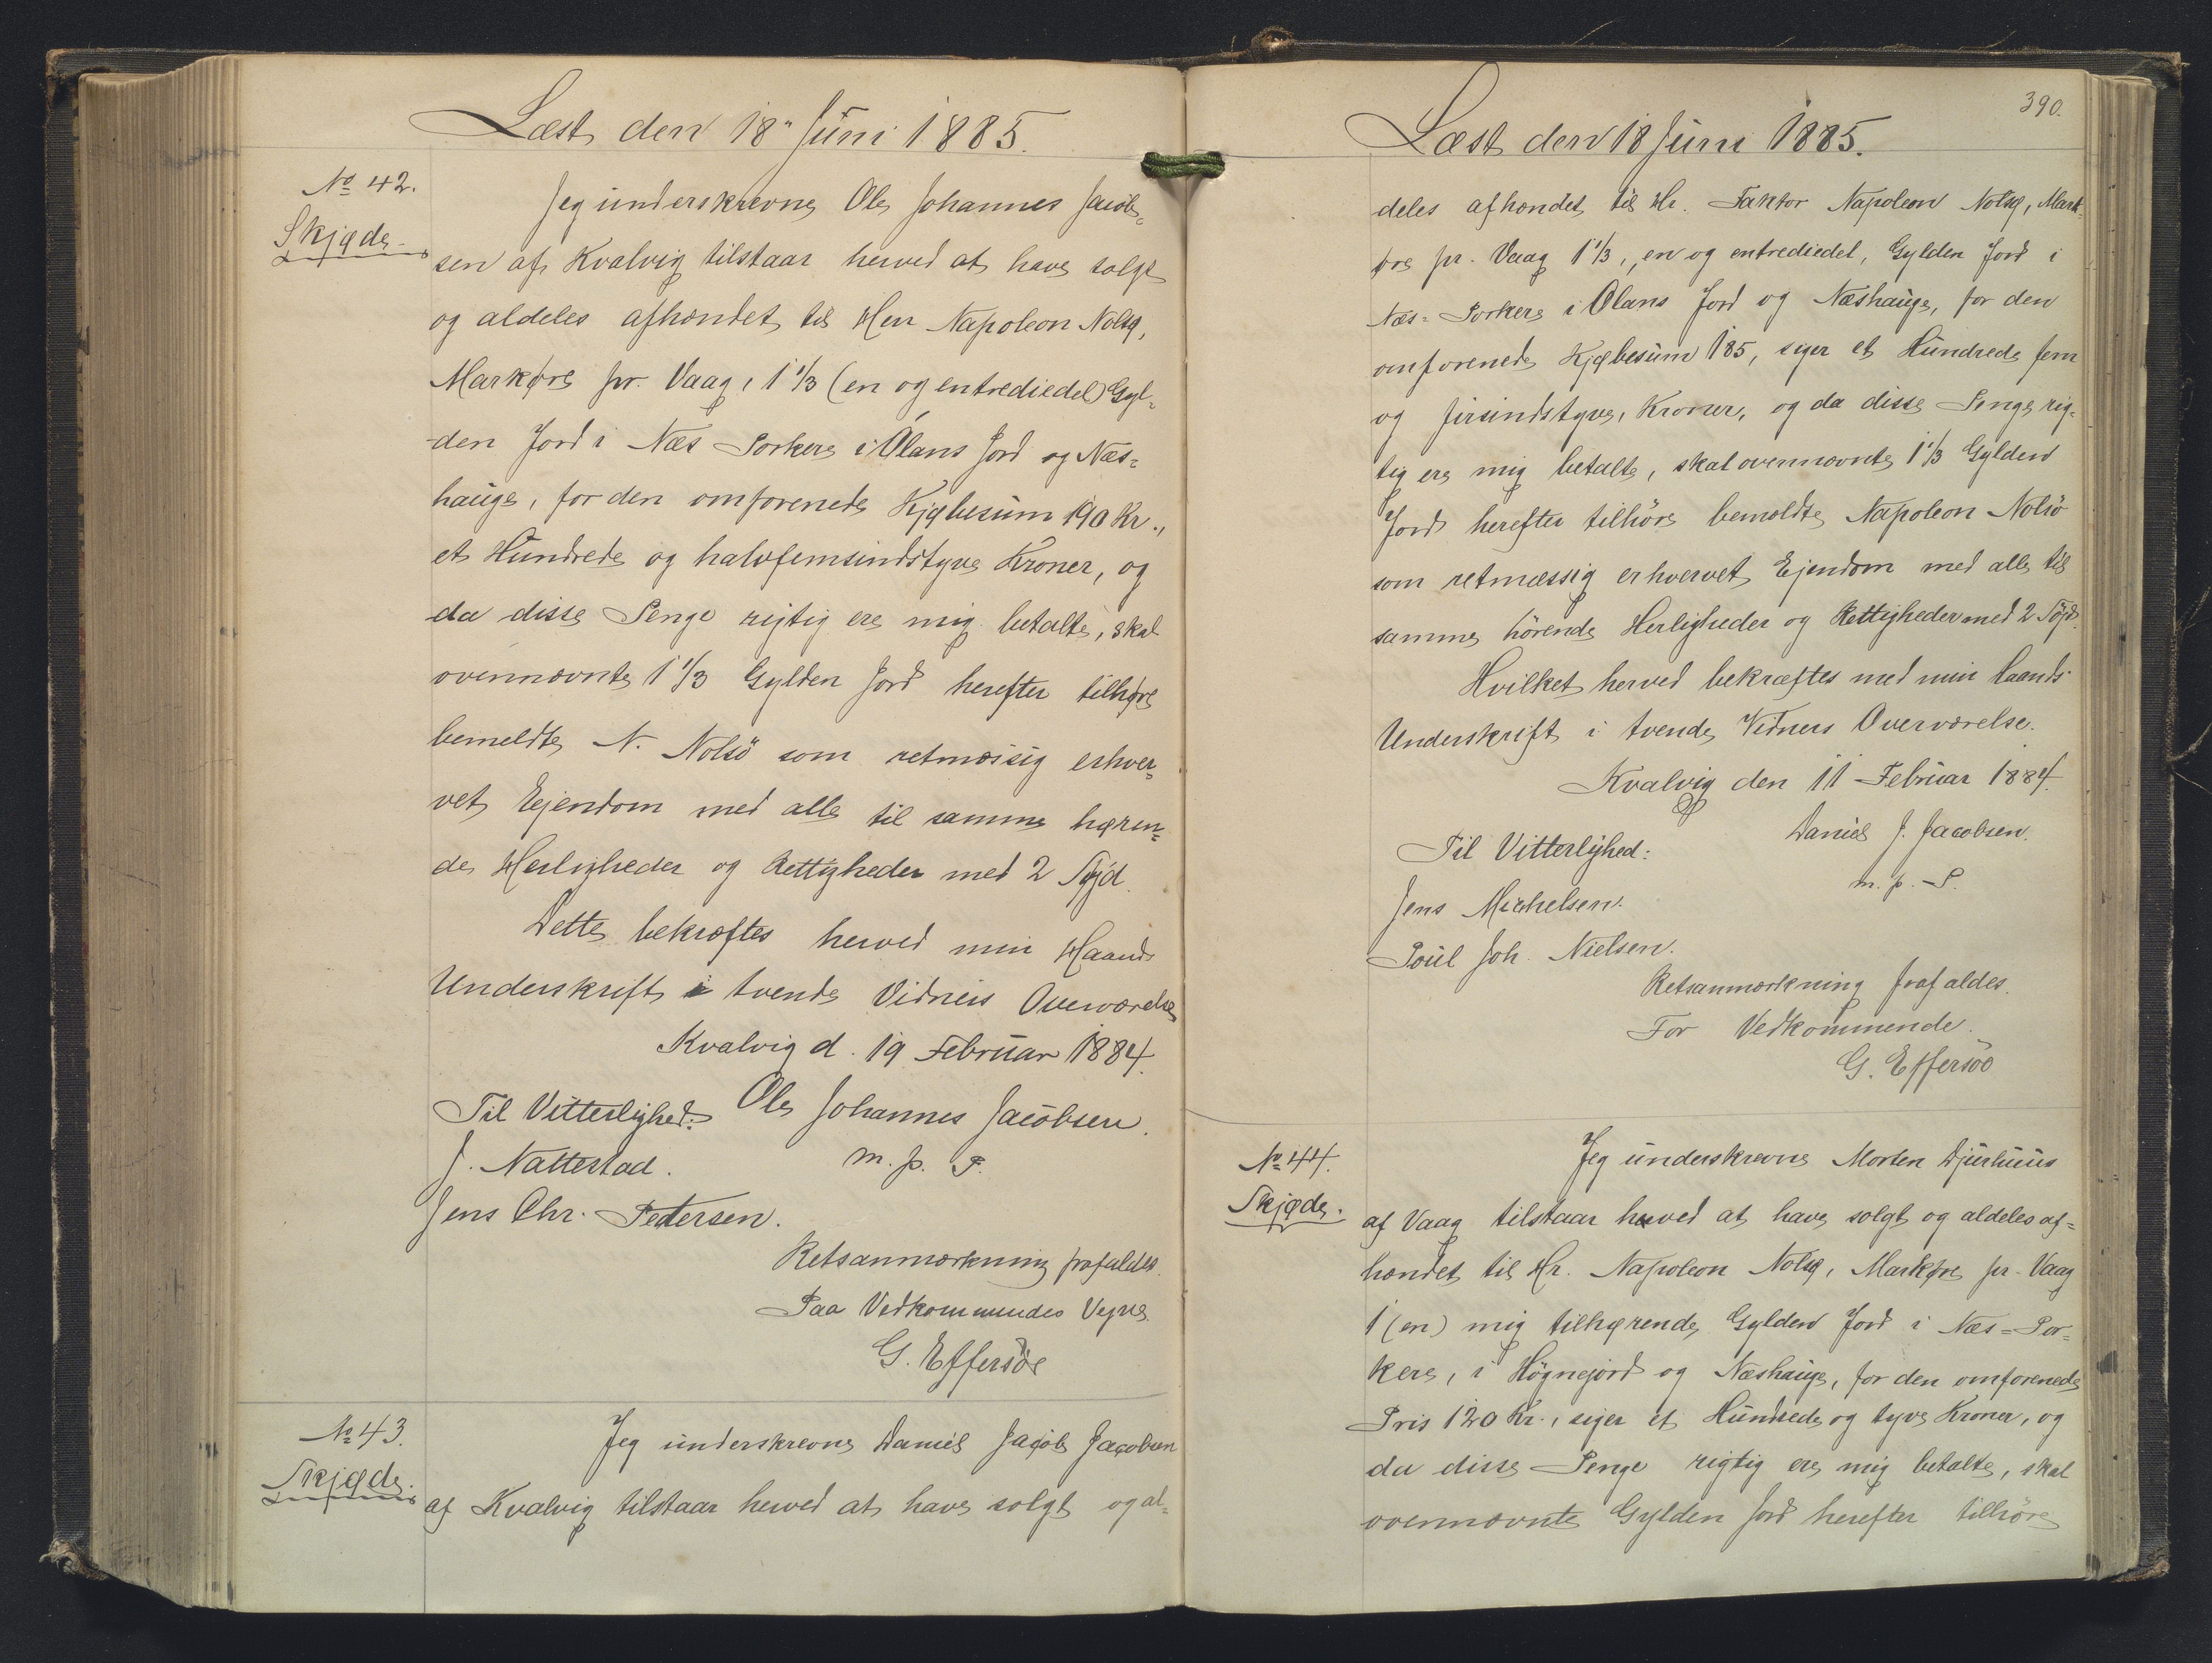 Læst den 18" Juni 1885.
No 42.
Skjøde.
Jeg underskrevne Ole Johannes Jacob=
sen af Kvalvig tilstaar herved at have solgt
og aldeles afhændet til Herr Napoleon Nolsø,
Markøre pr. Vaag, 1 1/3 (en og entrediedel) Gyl=
den Jord i Næs Porkere i Ólans Jord og Næs=
hauge, for den omforenede Kjøbesum 190 Kr.,
et Hundrede og halvfemsindstyve Kroner, og
da disse Penge rigtig ere mig betalte, skal
ovennævnte 1 1/3 Gylden Jord herefter tilhøre
bemeldte N. Nolsö som retmæssig erhver=
vet Ejendom med alle til samme høren=
de Herligheder og Rettigheder med 2 Søjd.
Dette bekræftes herved min Haands
Underskrift i tvende Vidners Overværelse
Kvalvig d. 19 Februar 1884.
Til Vitterlighed: Ole Johannes Jacobsen.
J. Nattestad. m. p. P.
Jens Chr. Petersen.
Retsanmærkning frafaldes.
Paa Vedkommendes Vegne.
G. Effersöe
No 43.
Skjøde.
Jeg underskrevne Daniel Jacob Jacobsen
af Kvalvig tilstaar herved at have solgt og al=
390.
Læst den 18 Juni 1885.
deles afhændet til Hr. Faktor Napoleon Nolsø, Mark=
øre pr. Vaag 1 1/3, en og entrediedel, Gylden Jord i
Næs=Porkere i Ólans Jord og Næshauge, for den
omforenede Kjøbesum 185, siger et Hundrede fem
og firsindstyve, Kroner, og da disse Penge rig=
tig ere mig betalte, skal ovennævnte 1 1/3 Gylden
Jord herefter tilhöre bemeldte Napoleon Nolsö
som retmæssig erhvervet Ejendom med alle til
samme hörende Herligheder og Rettigheder med 2 Söjd.
Hvilket herved bekræftes med min Haands
Underskrift i tvende Vidners Overværelse.
Kvalvig den 11 Februar 1884.
Daniel J. Jacobsen.
Til Vitterlighed:
m. p. P.
Jens Michelsen.
Poul Joh. Nielsen.
Retsanmærkning frafaldes.
For Vedkommende.
G. Effersöe
No 44.
Skjøde.
Jeg underskrevne Morten Djurhuus
af Vaag tilstaar herved at have solgt og aldeles af=
hændet til Hr. Napoleon Nolsø, Markøre pr. Vaag
1 (en) mig tilhørende Gylden Jord i Næs=Por=
kere, i Högnejord og Næshauge, for den omforenede
Pris 120 Kr., siger et Hundrede og tyve Kroner, og
da disse Penge rigtig ere mig betalte, skal
ovennævnte Gylden Jord herefter tilhöre